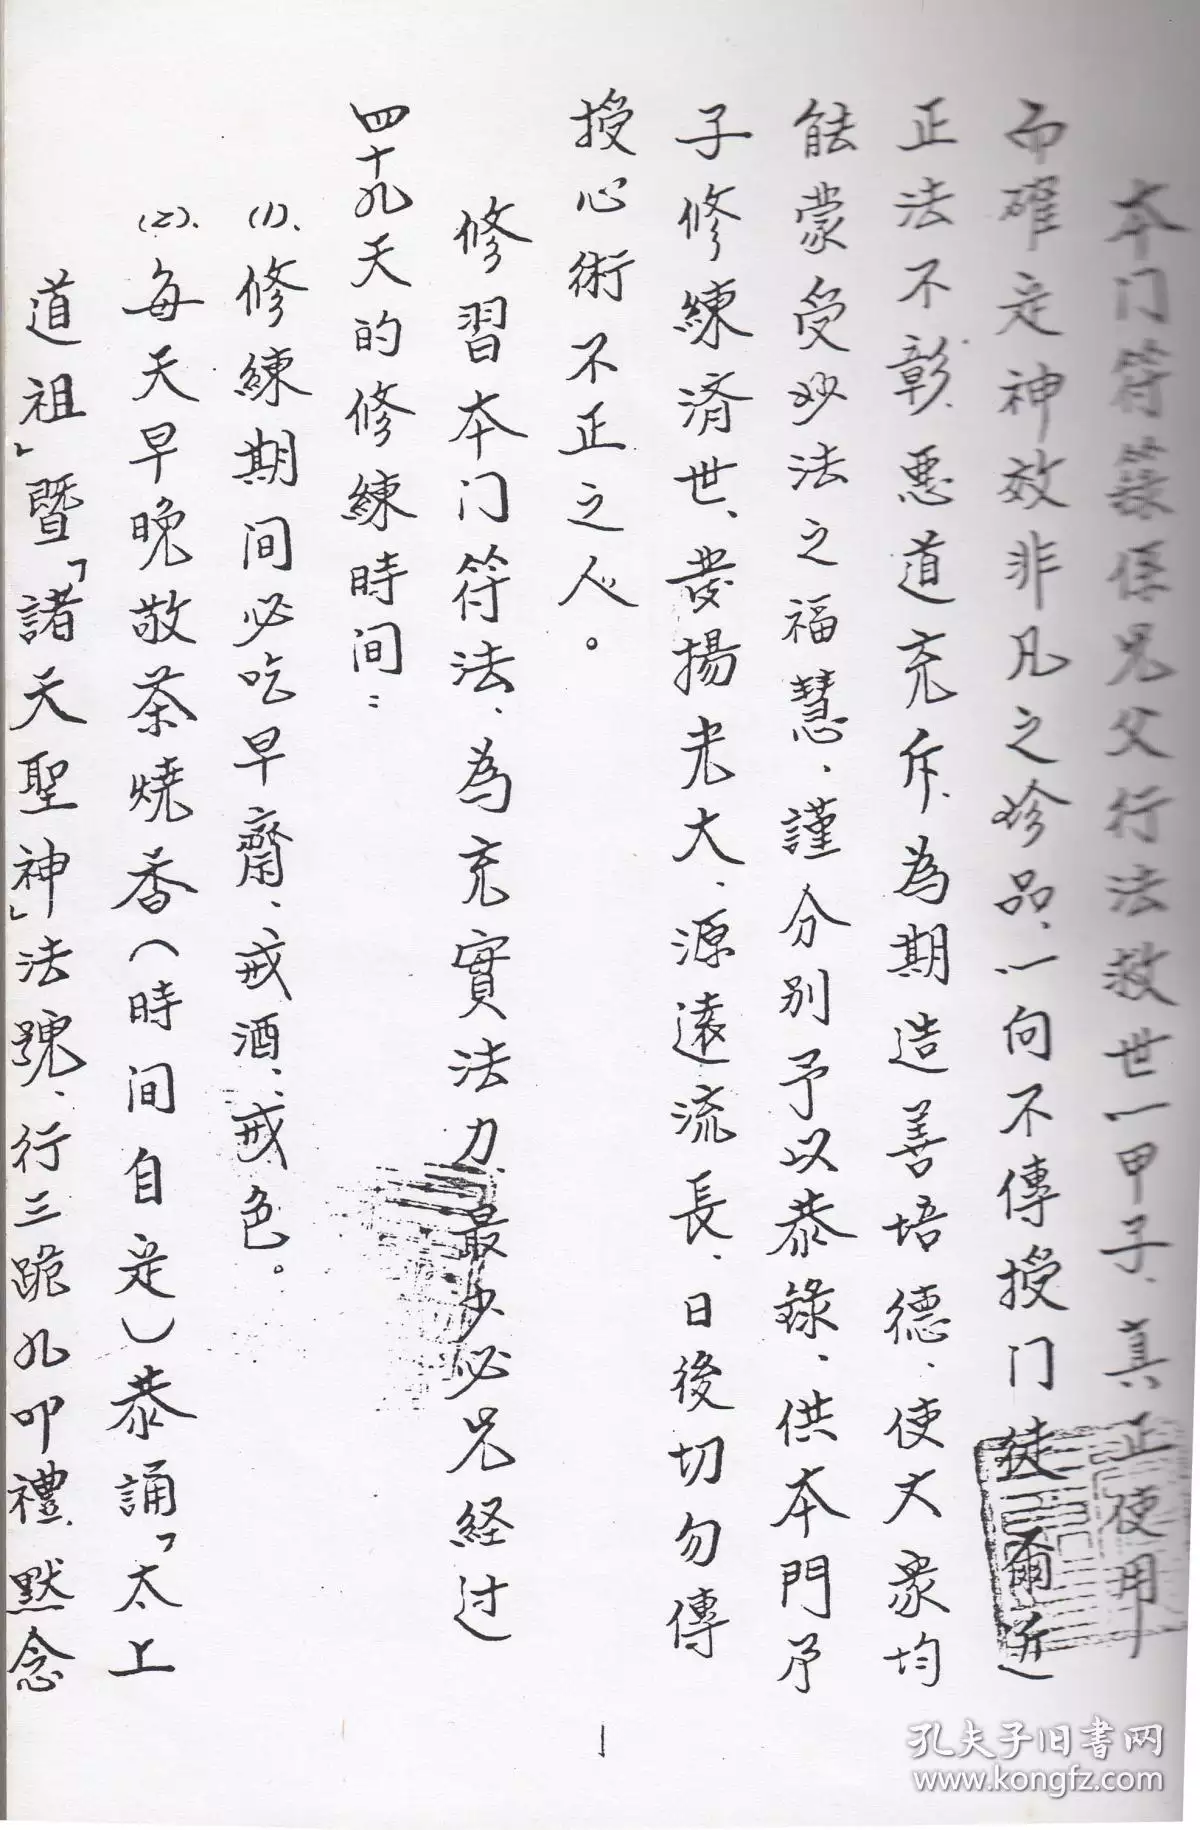 本门符籙係兄父行法救世一甲子、真正使用
而確定神效非凡之珍品、一向不傳授门徒、爾近
正法不彰、惡道充斥、為期造善培德、使大眾均
能蒙受妙法之福慧、謹分別予以恭錄、供本門弟
子修練済世、發揚光大、源遠流長、日後切勿傳
授心術不正之人。
修習本门符法、為充實法力最少必兄経过
四十九天的修練時间：
(1)、修練期间必吃早齋、戒酒、戒色。
(2)、每天早晚敬茶燒香(時间自定)恭誦「太上
道祖」暨「諸天聖神」法號、行三跪九叩禮、默念
1
孔夫子旧书网
www.kongfz.com